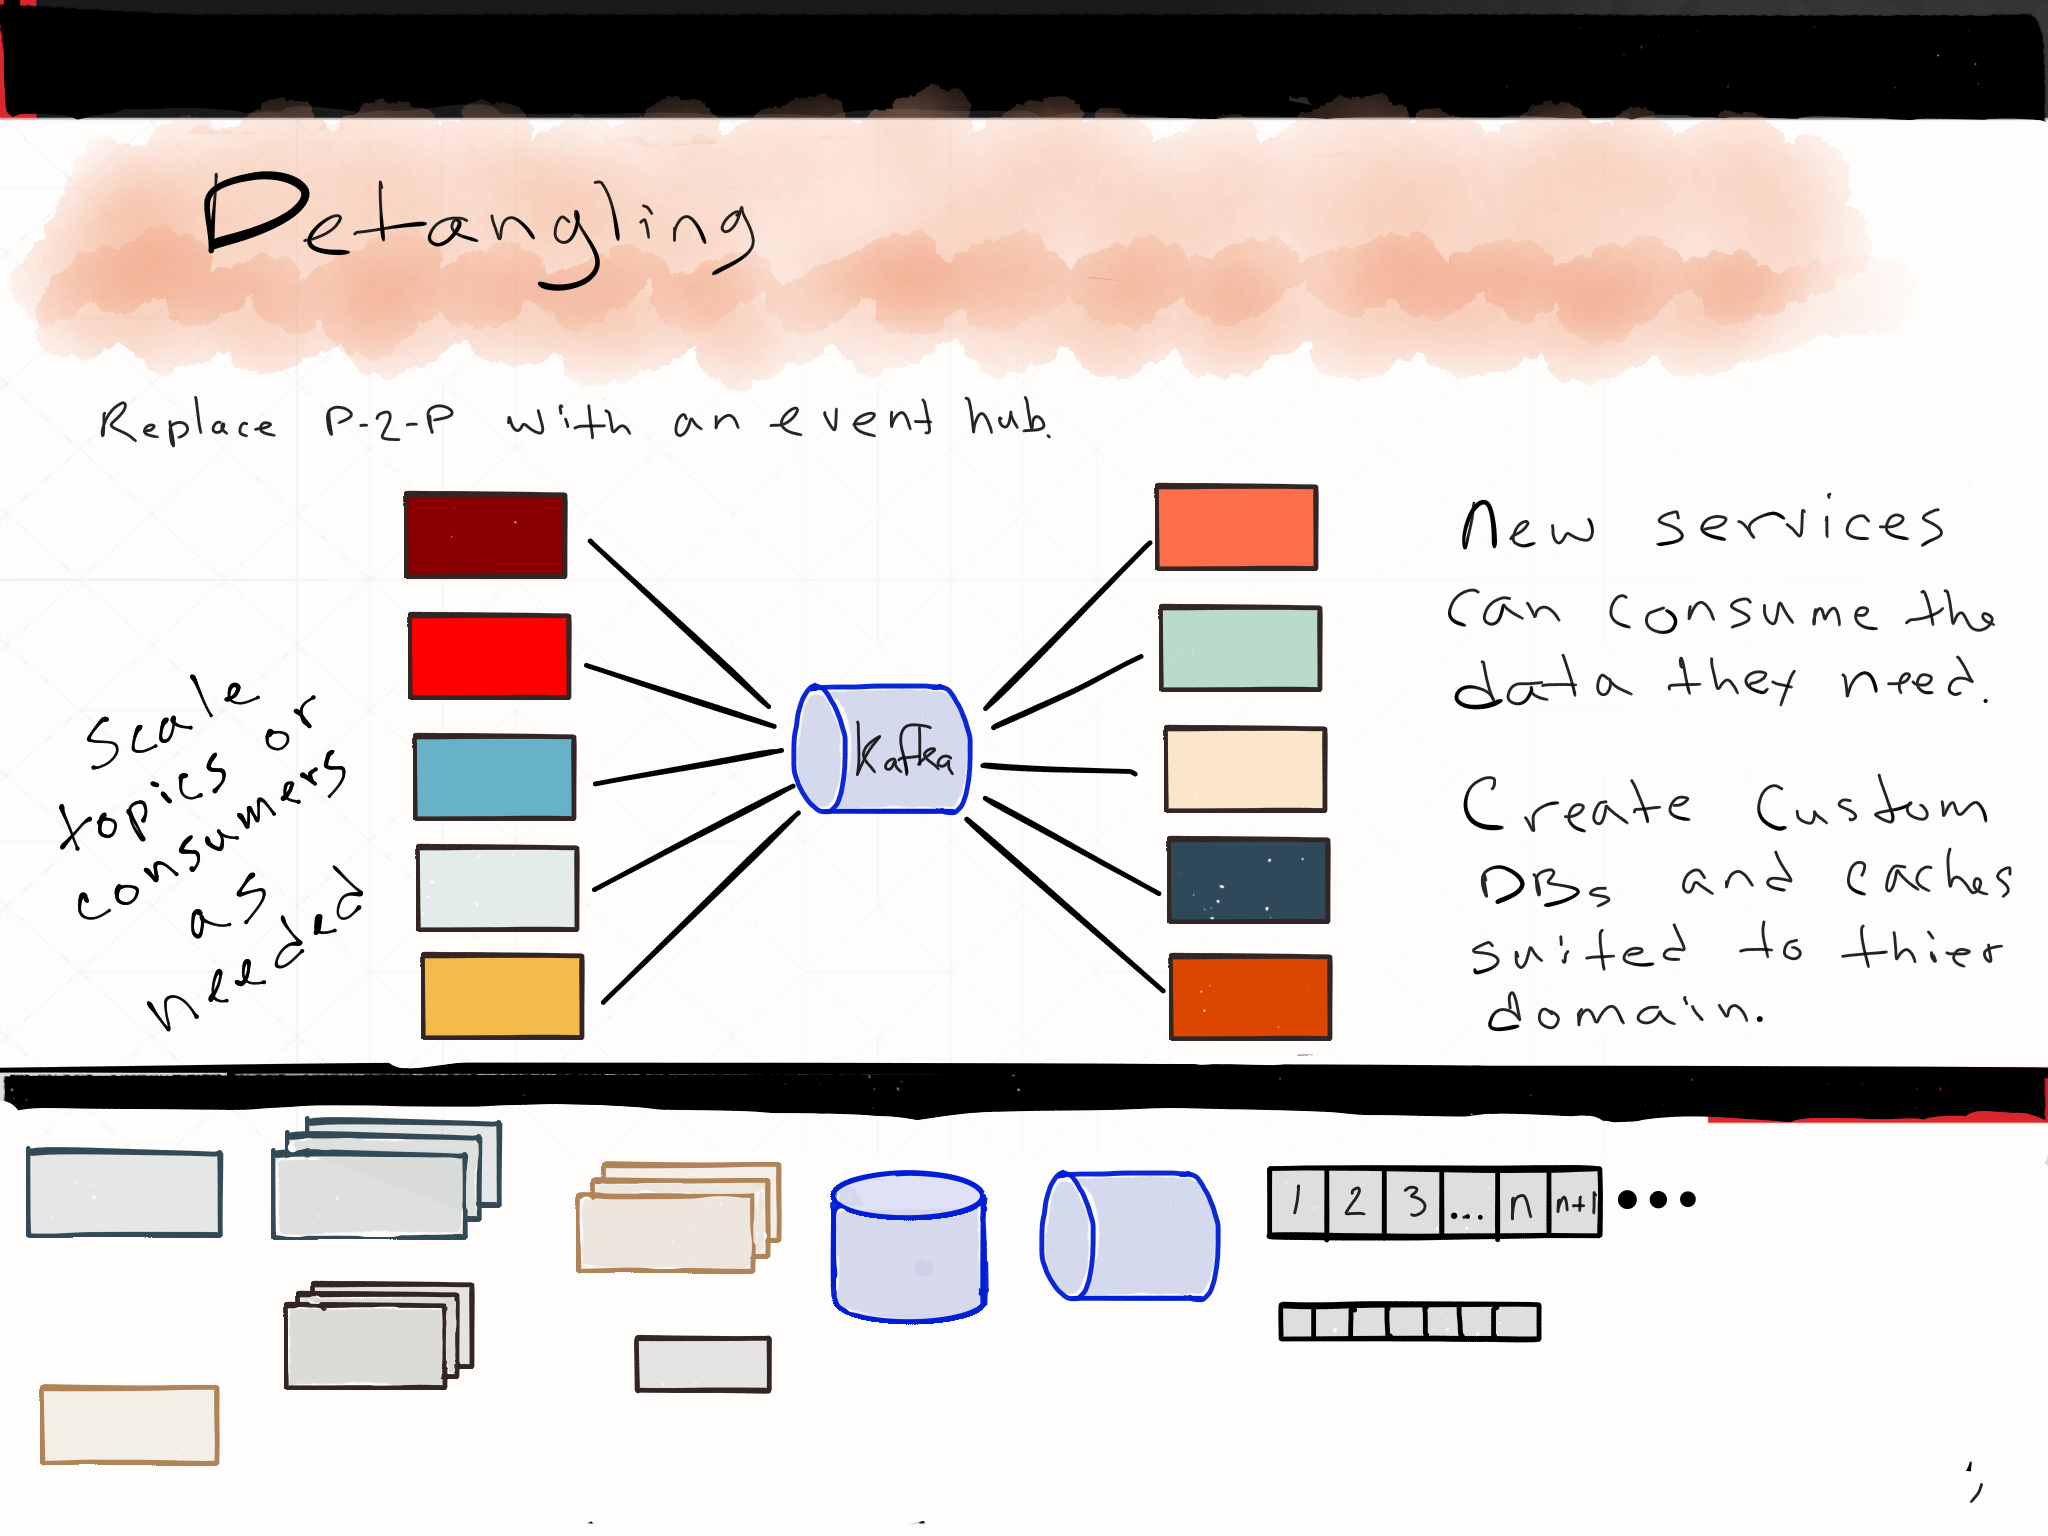 Detangling
Replace P-2-P with an event hub.
Scale
topics or
consumers
as
needed
Kafka
New services
can consume the
data they need.
Create Custom
DBs and caches
suited to thier
domain.
1 2 3 ... n n+1 •••